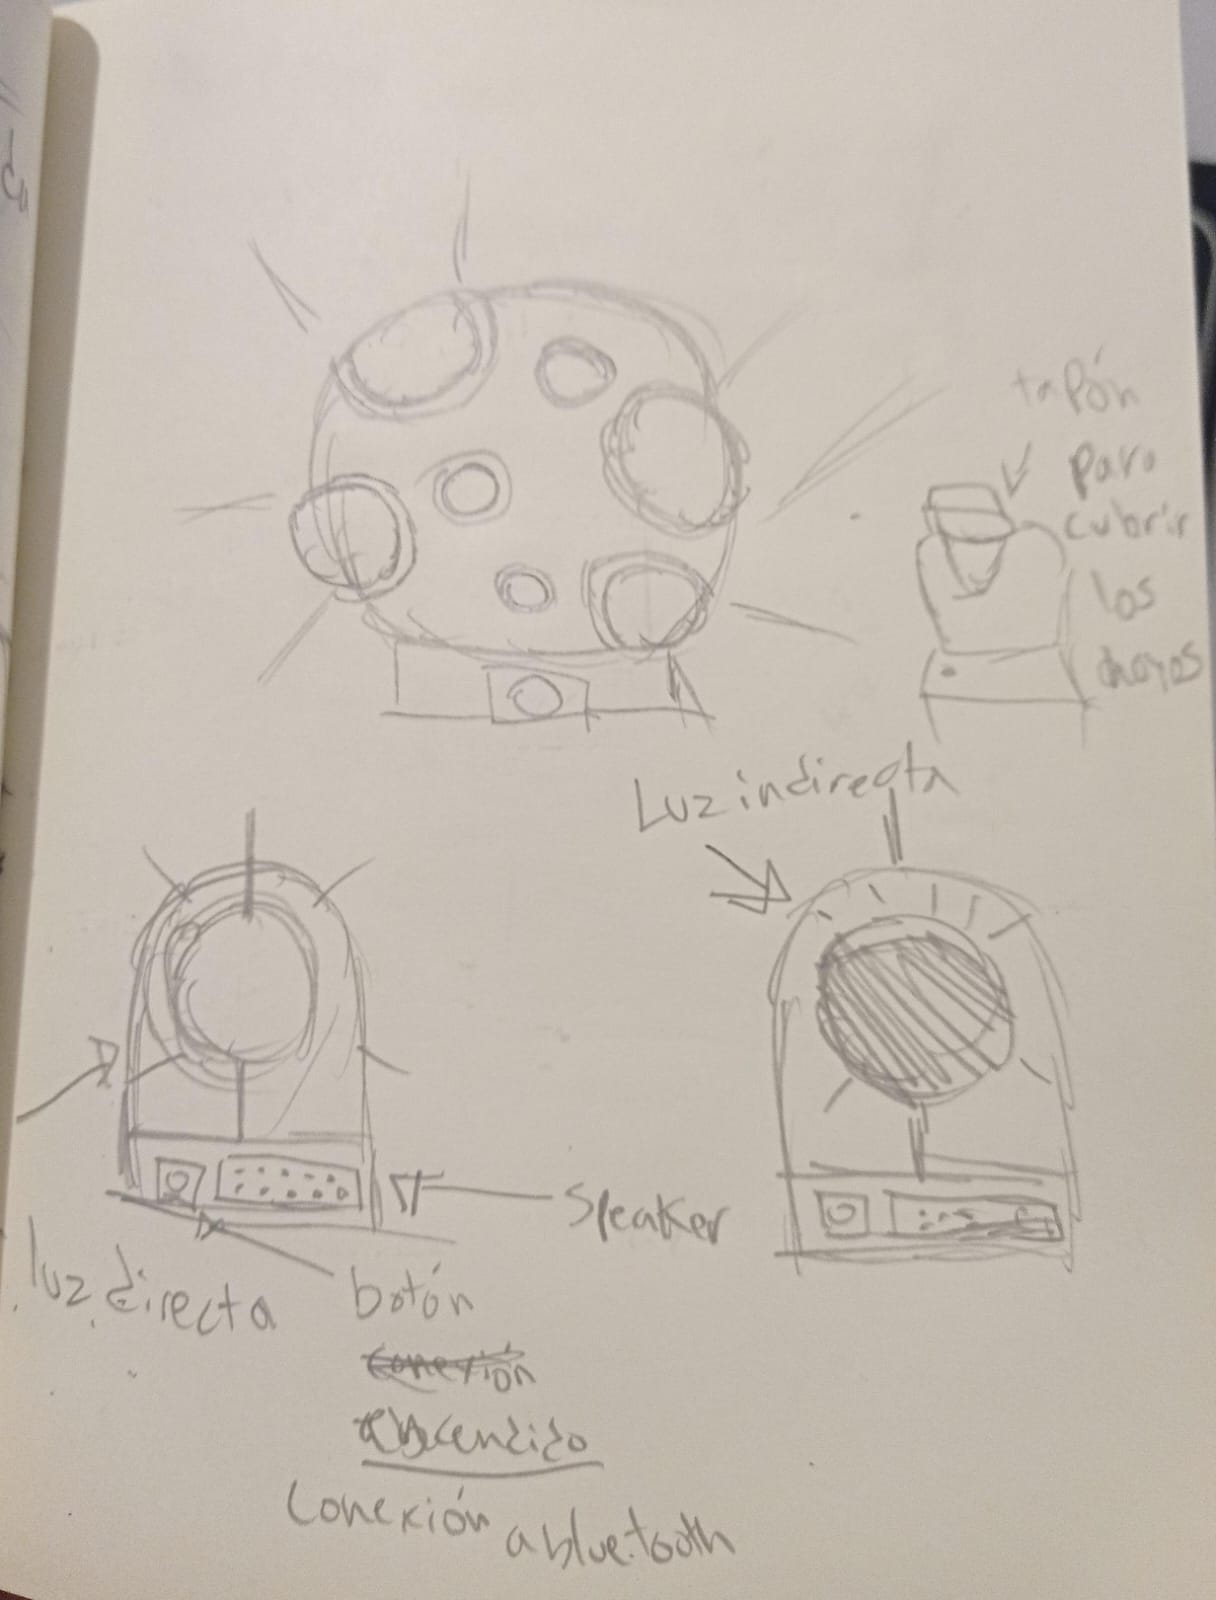 tapón
para
cubrir
los
hoyos
Luz indirecta
Speaker
luz directa
botón
conexión
encendido
Conexión a bluetooth